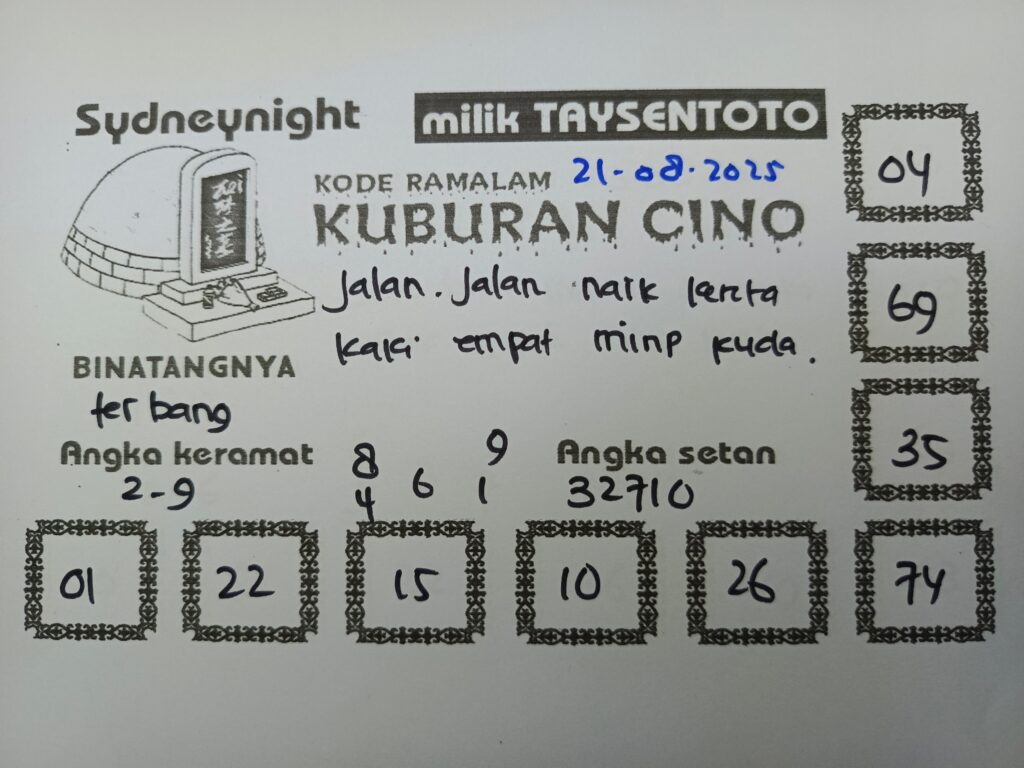 Sydneynight
milik TAYSENTOTO
KODE RAMALAM 21-08-2025
KUBURAN CINO
Jalan. Jalan naik
kaki empat kuda.
BINATANGNYA
ter bang
Angka keramat
2-9
8 9
4 6 1
Angka setan
32710
04
69
35
01 22 15 10 26 74